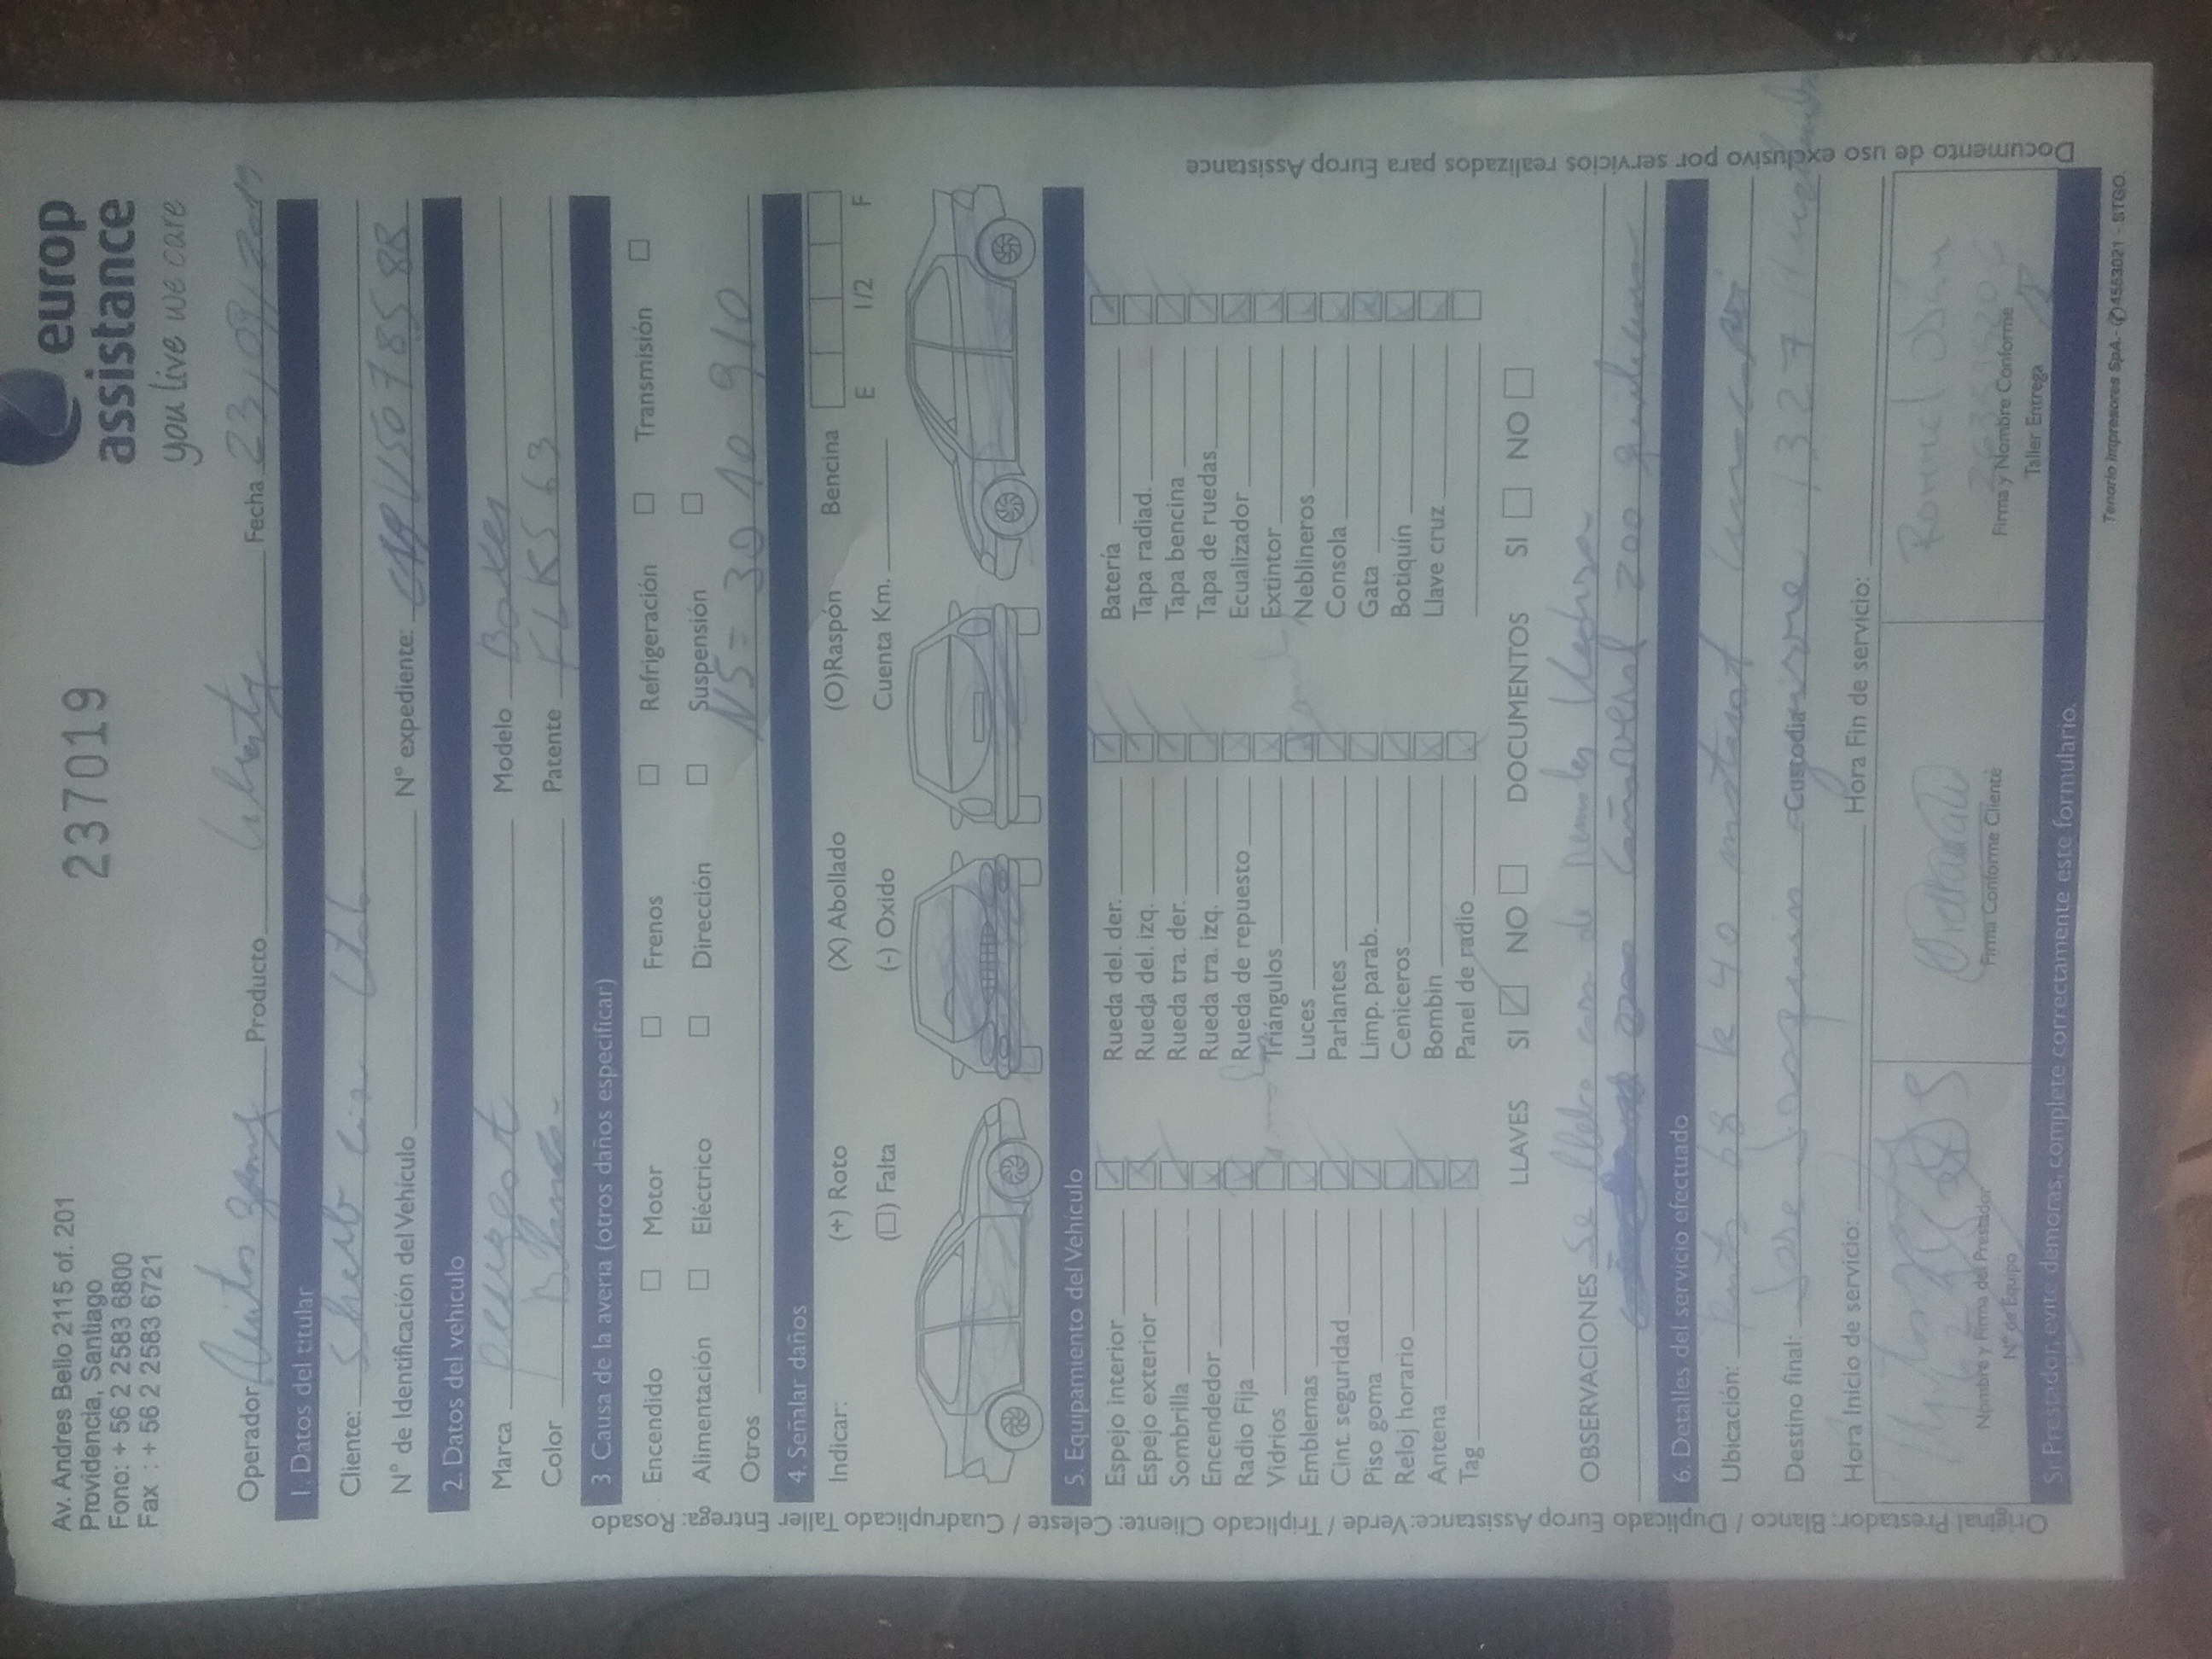 Av. Andres Bello 2115 of. 201
Providencia, Santiago
Fono: + 56 2 2583 6800
Fax : + 56 2 2583 6721
237019
europ
assistance
you live we care
Operador Producto Liberty Fecha 23/09/2019
1. Datos del titular
Cliente:
N° de Identificación del Vehículo N° expediente:
2. Datos del vehículo
Marca Peugeot Modelo Boxer
Color Blanco Patente FLKS 63
3. Causa de la avería (otros daños especificar)
Encendido Motor Frenos Refrigeración Transmisión
Alimentación Eléctrico Dirección Suspensión
Otros NS = 30 10 910
4. Señalar daños
Indicar: (+) Roto (X) Abollado (O)Raspón Bencina
(□) Falta (-) Oxido Cuenta Km. E 1/2 F
5. Equipamiento del Vehículo
Espejo interior Rueda del. der. Batería
Espejo exterior Rueda del. izq. Tapa radiad.
Sombrilla Rueda tra. der. Tapa bencina
Encendedor Rueda tra. izq. Tapa de ruedas
Radio Fija Rueda de repuesto Ecualizador
Vidrios Triángulos Extintor
Emblemas Luces Neblineros
Cint. seguridad Parlantes Consola
Piso goma Limp. parab. Gata
Reloj horario Ceniceros Botiquín
Antena Bombín Llave cruz
Tag Panel de radio
LLAVES SI NO DOCUMENTOS SI NO
OBSERVACIONES Se
200
6. Detalles del servicio efectuado
Ubicación: 68 K 40
Destino final: Jose Custodia 1327
Hora Inicio de servicio: Hora Fin de servicio:
Nombre y Firma del Prestador
N° de Equipo
Firma Conforme Cliente
Firma y Nombre Conforme
Taller Entrega
Sr. Prestador, evite demoras, complete correctamente este formulario.
Tenorio Impresores SpA.- ✆4553021 - STGO.
Original Prestador: Blanco / Duplicado Europ Assistance:Verde / Triplicado Cliente: Celeste / Cuadruplicado Taller Entrega: Rosado
Documento de uso exclusivo por servicios realizados para Europ Assistance